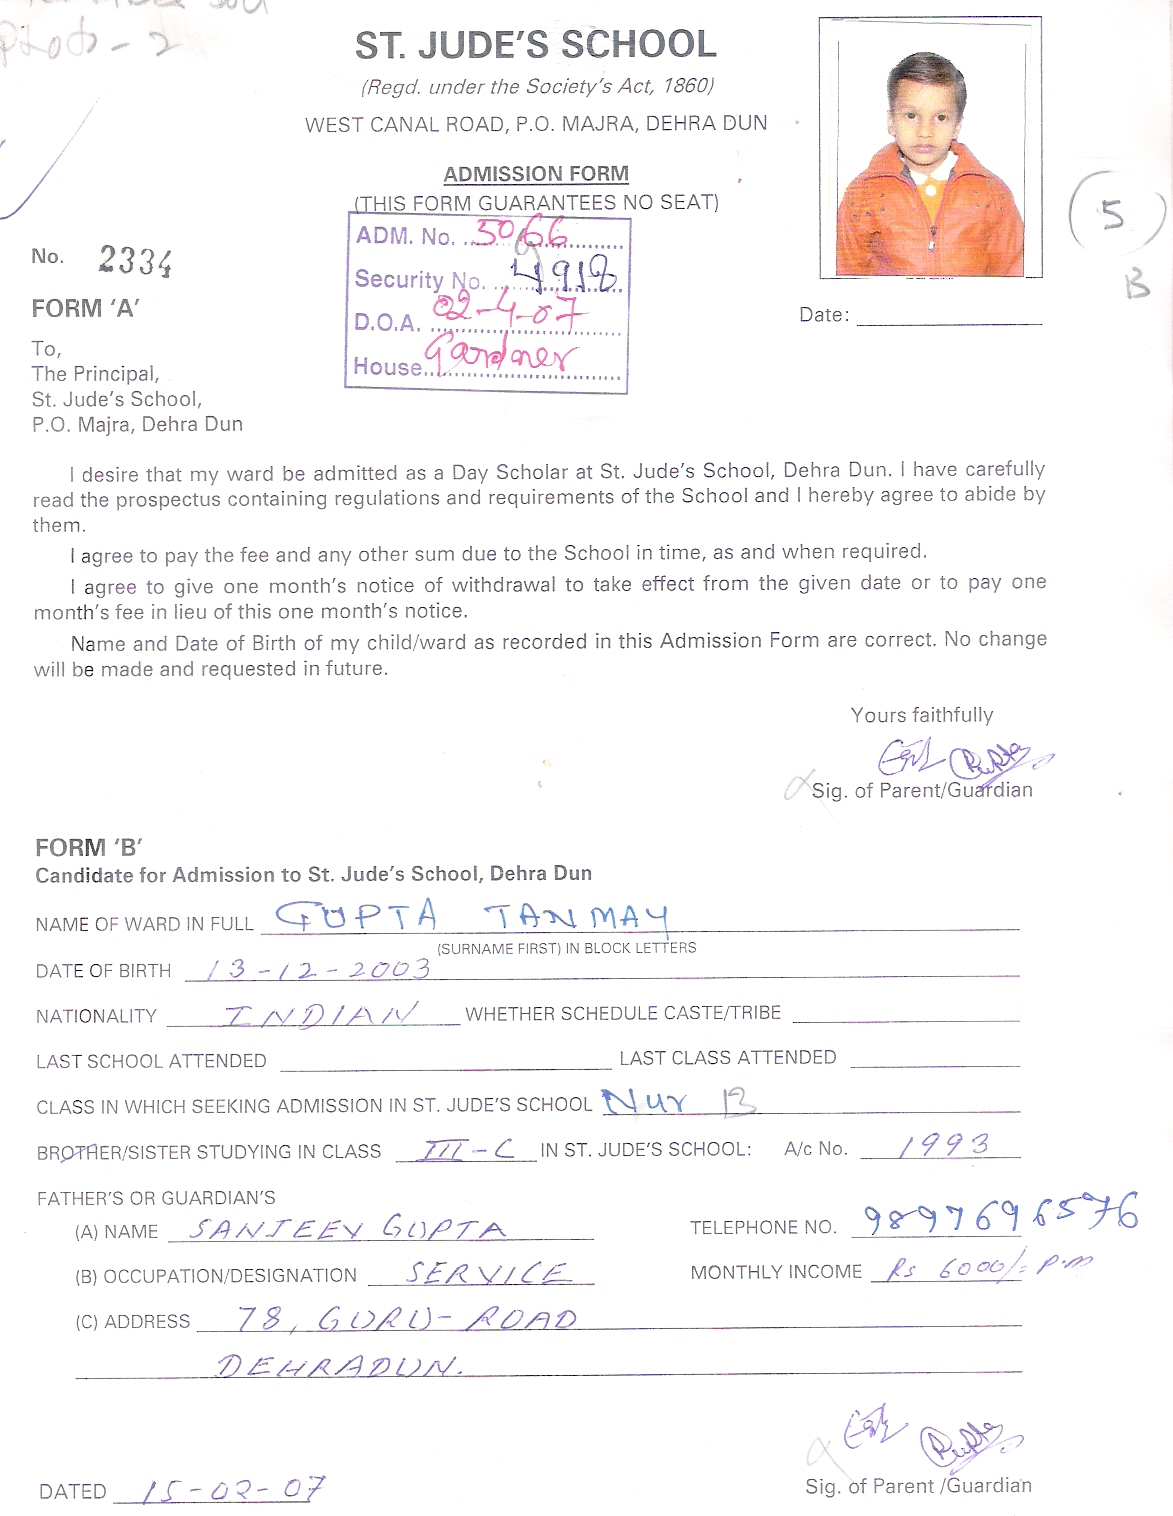 Photo - 2
ST. JUDE'S SCHOOL
(Regd. under the Society's Act, 1860)
WEST CANAL ROAD, P.O. MAJRA, DEHRA DUN
ADMISSION FORM
(THIS FORM GUARANTEES NO SEAT)
ADM. No. 5066
Security No. 4918
D.O.A. 02-4-07
House Gardner
5
B
No. 2334
Date:
FORM 'A'
To,
The Principal,
St. Jude's School,
P.O. Majra, Dehra Dun
I desire that my ward be admitted as a Day Scholar at St. Jude's School, Dehra Dun. I have carefully
read the prospectus containing regulations and requirements of the School and I hereby agree to abide by
them.
I agree to pay the fee and any other sum due to the School in time, as and when required.
I agree to give one month's notice of withdrawal to take effect from the given date or to pay one
month's fee in lieu of this one month's notice.
Name and Date of Birth of my child/ward as recorded in this Admission Form are correct. No change
will be made and requested in future.
Yours faithfully
Gupta
Sig. of Parent/Guardian
FORM 'B'
Candidate for Admission to St. Jude's School, Dehra Dun
NAME OF WARD IN FULL GUPTA TANMAY
(SURNAME FIRST) IN BLOCK LETTERS
DATE OF BIRTH 13-12-2003
NATIONALITY INDIAN WHETHER SCHEDULE CASTE/TRIBE
LAST SCHOOL ATTENDED LAST CLASS ATTENDED
CLASS IN WHICH SEEKING ADMISSION IN ST. JUDE'S SCHOOL Nur B
BROTHER/SISTER STUDYING IN CLASS III-C IN ST. JUDE'S SCHOOL: A/c No. 1993
FATHER'S OR GUARDIAN'S
(A) NAME SANJEEV GUPTA TELEPHONE NO. 9897696576
(B) OCCUPATION/DESIGNATION SERVICE MONTHLY INCOME Rs 6000/= P.m
(C) ADDRESS 78, GURU-ROAD
DEHRADUN.
Gupta
Sig. of Parent /Guardian
DATED 15-02-07